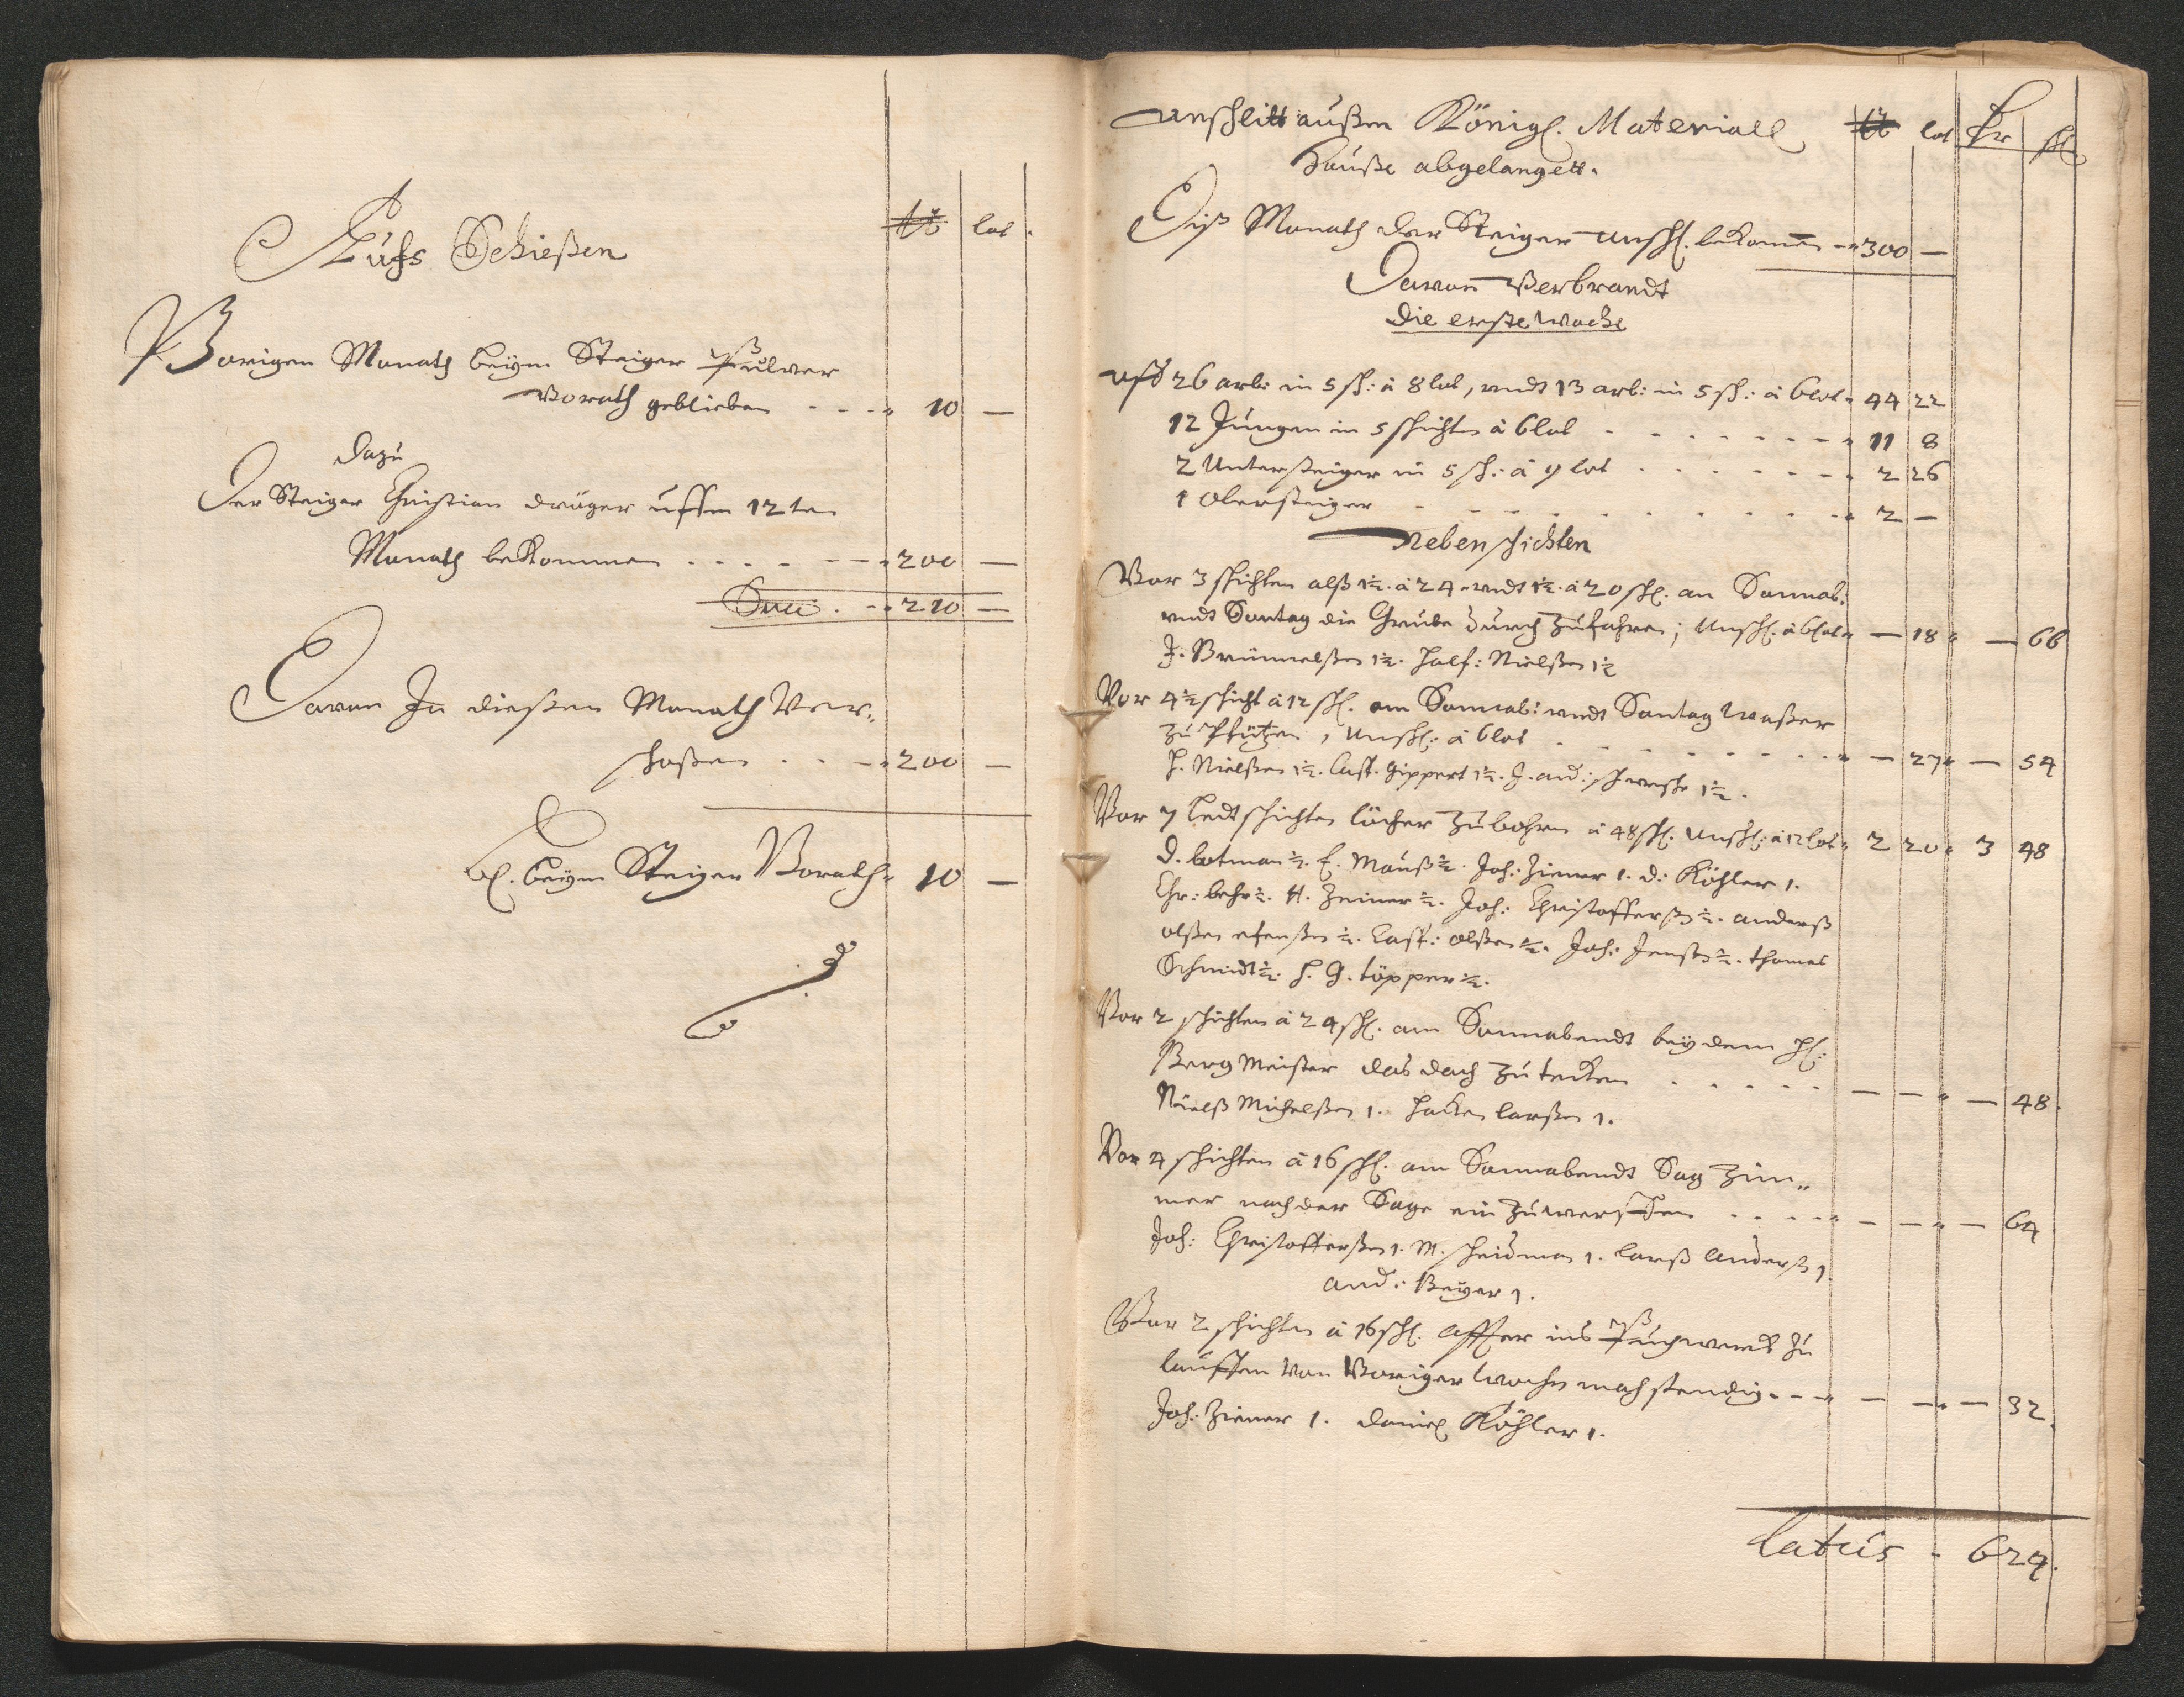 ℔ lot.
Aufs Schießen
Vorigen Monath beym Steiger Pulver
Vorath geblieben - - - " 10 —
dazu
Der Steiger Christian dräger uffm 12ten
Monath bekommen . . . . - - - "200 —
Sum̄a . - "210 —
Davon In dießen Monath Ver„
schoßen . . - "200 —
bl. beym Steiger Vorath " 10 —
Unschlitt außm Königl. Materiall ℔ lot
Hauße abgelangett.
Diß Monath der Steiger Unschl. bekom̄en - "300 —
Davon Verbrandt
Die erste Woche
uff 26 arb: in 5 sch: à 8 lot, undt 13 arb: in 5 sch: à 6 lot " 44 22
12 Jungen in 5 schichten à 6 lot - - - - " 11 8
2 Untersteiger in 5 sch: à 9 lot - - - - 2 26
1 Obersteiger - - - - " 2 —
Neben schichten
Vor 3 schichten alß 1½. à 24. undt 1½. à 20 ßl. am Sonnab:
undt Sontag die Grube durch Zufahren; Unschl. à 6 lot " — 18 " — 66
J. Brummelßen 1½. Half: Nielßen 1½
Vor 4½ schicht à 12 ßl. am Sonnab: undt Sontag Waßer
zu Pfützen, Unschl: à 6 lot - - - - " — 27 " — 54
H. Nielßen 1½. Cast. Gippert 1½. J. and: 1½.
Vor 7 Ledtschichten löcher Zubohren à 48 ßl. Unschl: à 12 lot " 2 20 " 3 48
D. lotman ½. E. Mauß ½. Joh: Ziener 1. D: Köhler 1.
Chr: behr ½. H. Zeiner ½. Joh: Christofferß: ½. anderß
olßen ½. Cast: olßen ½. Joh: Jenßen ½. thomas
Schmidt ½. H. G. töpper ½.
Vor 2 schichten à 24 ßl. am Sonnabendt bey dem H:
Berg Meister das dach zu decken - - - - — — " — 48.
Nielß Michelßen 1. Hacken larßen 1.
Vor 4 schichten à 16 ßl. am Sonnabendt Sag Zim„
mer nach der Sage ein zuwerffen - - - " — — " — 64
Joh: Christofferßen 1. M. scheidman 1. larß anderß: 1.
and: Beyer 1.
Vor 2 schichten à 16 ßl. affter ins Puchwerck zu
lauffen von Voriger Wochen nachstendig - - - " — — " — 32.
Joh: Ziener 1. Daniel Köhler 1.
latus . 624.